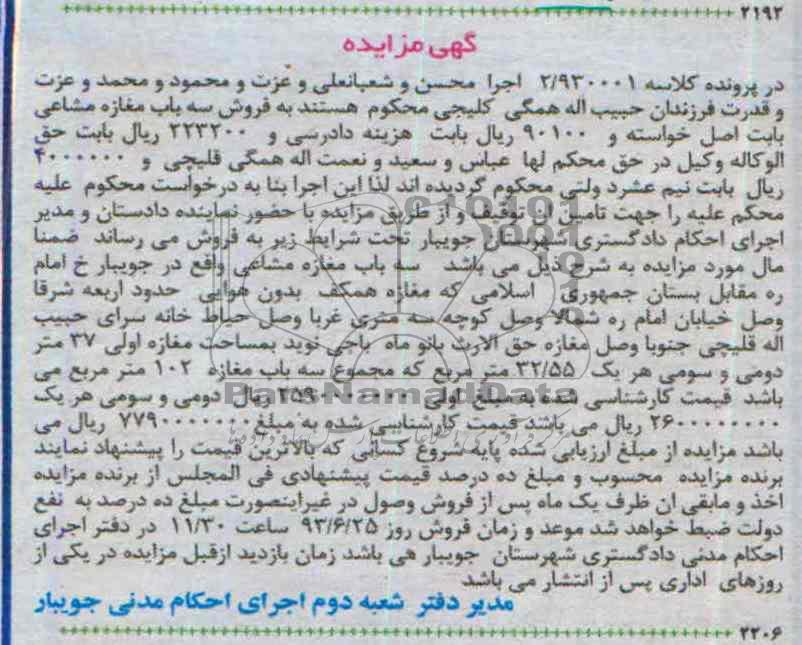 ۲۱۹۲
گهی مزایده
در پرونده کلاسه ۲/۹۳۰۰۰۱ اجرا محسن و شعبانعلی و عزت و محمود و محمد و عزت
و قدرت فرزندان حبیب اله همگی کلیجی محکوم هستند به فروش سه باب مغازه مشاعی
بابت اصل خواسته و ۹۰۱۰۰ ریال بابت هزینه دادرسی و ۲۲۳۲۰۰ ریال بابت حق
الوکاله وکیل در حق محکم لها عباس و سعید و نعمت اله همگی قلیچی و ۴۰۰۰۰۰۰
ریال بابت نیم عشرد ولتی محکوم گردیده اند لذا این اجرا بنا به درخواست محکوم علیه
محکم علیه را جهت تامین ان توقیف و از طریق مزایده با حضور نماینده دادستان و مدیر
اجرای احکام دادگستری شهرستان جویبار تحت شرایط زیر به فروش می رساند ضمنا
مال مورد مزایده به شرح ذیل می باشد سه باب مغازه مشاعی واقع در جویبار خ امام
ره مقابل بستان جمهوری اسلامی که مغازه همکف بدون هوایی حدود اربعه شرقا
وصل خیابان امام ره شمالا وصل کوچه سه متری غربا وصل حیاط خانه سرای حبیب
اله قلیچی جنوبا وصل مغازه حق الارث بانو ماه باجی نوید بمساحت مغازه اولی ۳۷ متر
دومی و سومی هر یک ۳۲/۵۵ متر مربع که مجموع سه باب مغازه ۱۰۲ متر مربع می
باشد قیمت کارشناسی شده به مبلغ اولی ریال دومی و سومی هر یک
۲۶۰۰۰۰۰۰۰۰ ریال می باشد قیمت کارشناسی شده به مبلغ ۷۷۹۰۰۰۰۰۰۰ ریال می
باشد مزایده از مبلغ ارزیابی شده پایه شروع کسانی که بالاترین قیمت را پیشنهاد نمایند
برنده مزایده محسوب و مبلغ ده درصد قیمت پیشنهادی فی المجلس از برنده مزایده
اخذ و مابقی ان ظرف یک ماه پس از فروش وصول در غیراینصورت مبلغ ده درصد به نفع
دولت ضبط خواهد شد موعد و زمان فروش روز ۹۳/۶/۲۵ ساعت ۱۱/۳۰ در دفتر اجرای
احکام مدنی دادگستری شهرستان جویبار می باشد زمان بازدید ازقبل مزایده در یکی از
روزهای اداری پس از انتشار می باشد
مدیر دفتر شعبه دوم اجرای احکام مدنی جویبار
۲۲۰۶
ParsNamadData